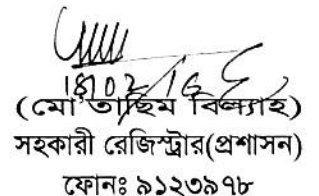 (মো তাছিম বিল্যাহ)
সহকারী রেজিস্ট্রার(প্রশাসন)
ফোনঃ ৯১২৩৯৭৮